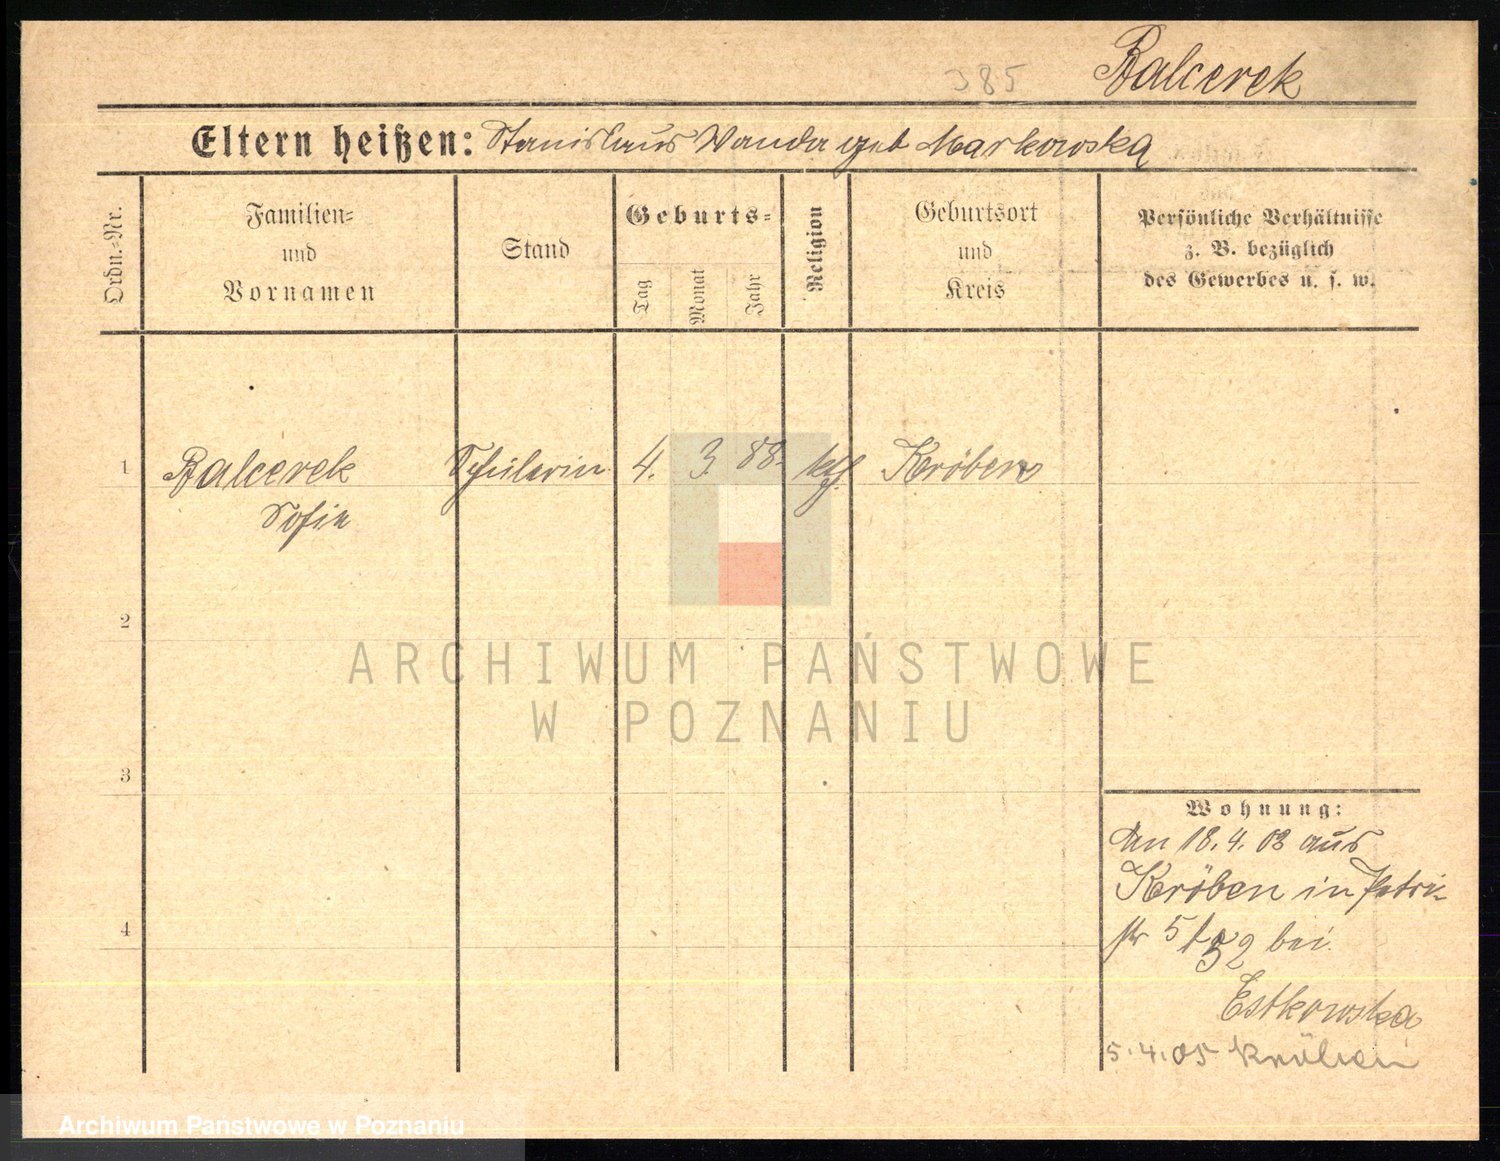 385
Balcerek
Eltern heißen: Stanislaus Wanda geb Markowska
Ordn.=Nr.
Familien=
und
Vornamen
Stand
Geburts=
Tag
Monat
Jahr
Religion
Geburtsort
und
Kreis
Persönliche Verhältnisse
z. B. bezüglich
des Gewerbes u. s. w.
1 Balcerek Schülerin 4. 3. 88. kth. Kröben
Sofie
2
ARCHIWUM PAŃSTWOWE
W POZNANIU
3
Wohnung:
18.4.03 aus
Kröben in Petri
4
str 5 bei
Estkowska
5.4.05 Kröben
Archiwum Państwowe w Poznaniu